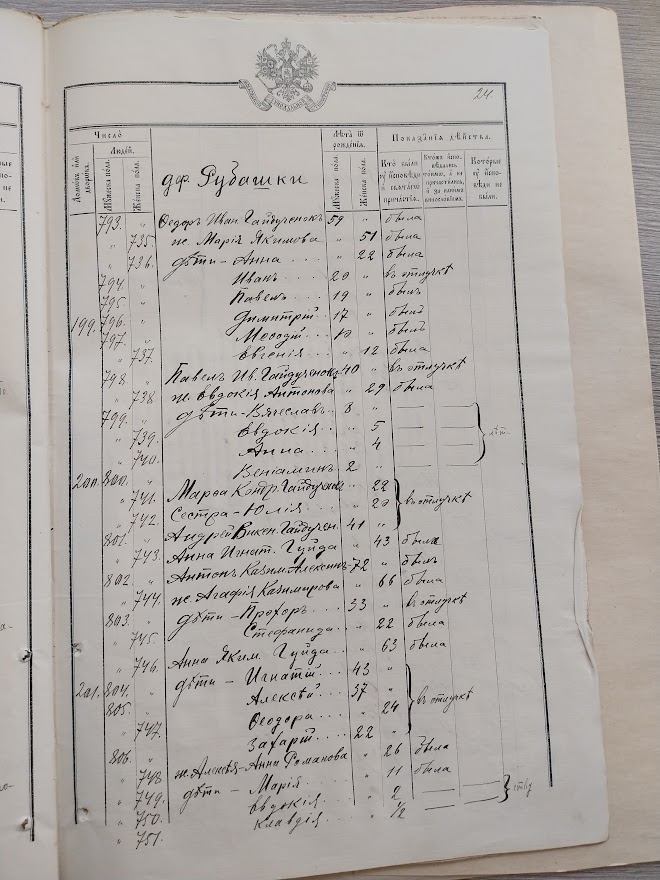 24
Число
Людей.
Домовъ или дворовъ.
Мужеска пола.
Женска пола.
дер. Рубашки
Лѣта ѿ рожденія.
Мужеска пола.
Женска пола.
Показанія дѣйства.
Кто были у исповѣди и святаго причастія.
Которые у исповѣди не были.
793. " Ѳедоръ Иван. Гайдученокъ 59 " была
" 735. ж. Марія Якимова " 51 была
" 736. дѣти - Анна " 22 была
794 " Иванъ 20 " въ отлучкѣ
795 " Павелъ 19 " былъ
199. 796. " Димитрій 17 " былъ
797. " Меѳодій "
" 737. Евгенія " 12 была
798 " Павелъ Ив. Гайдученокъ 40 " въ отлучкѣ
" 738 ж. Евдокія Антонова " 29 была
799. " дѣти - Вячеславъ 8 "
" 739. Евдокія " 5
" 740. Анна " 4
200. 800. " Веніаминъ 2 "
" 741. Марѳа Кондр. " 22
" 742. Сестра - Юлія " 20 въ отлучкѣ
801. " Андрей Викен. Гайдучен. 41 "
" 743 Анна Игнат. Гуйда " 43 была
802. " Антонъ Казим. 72 " былъ
" 744. ж. Агафія Казимирова " 66 была
803. " дѣти - Прохоръ 33 " въ отлучкѣ
" 745 Стефанида " 22 была
" 746. Анна Яким. Гуйда " 63 была
201. 804. " дѣти - Игнатій 43 "
805. " Алексѣй 37 " въ отлучкѣ
" 747. Ѳеодора " 24
806. " Захарій 22 "
" 748 ж. Алексѣя - Анна Романова " 26 была
" 749. дѣти - Марія " 11 была
" 750. Евдокія " 2
" 751. Клавдія " 1/2